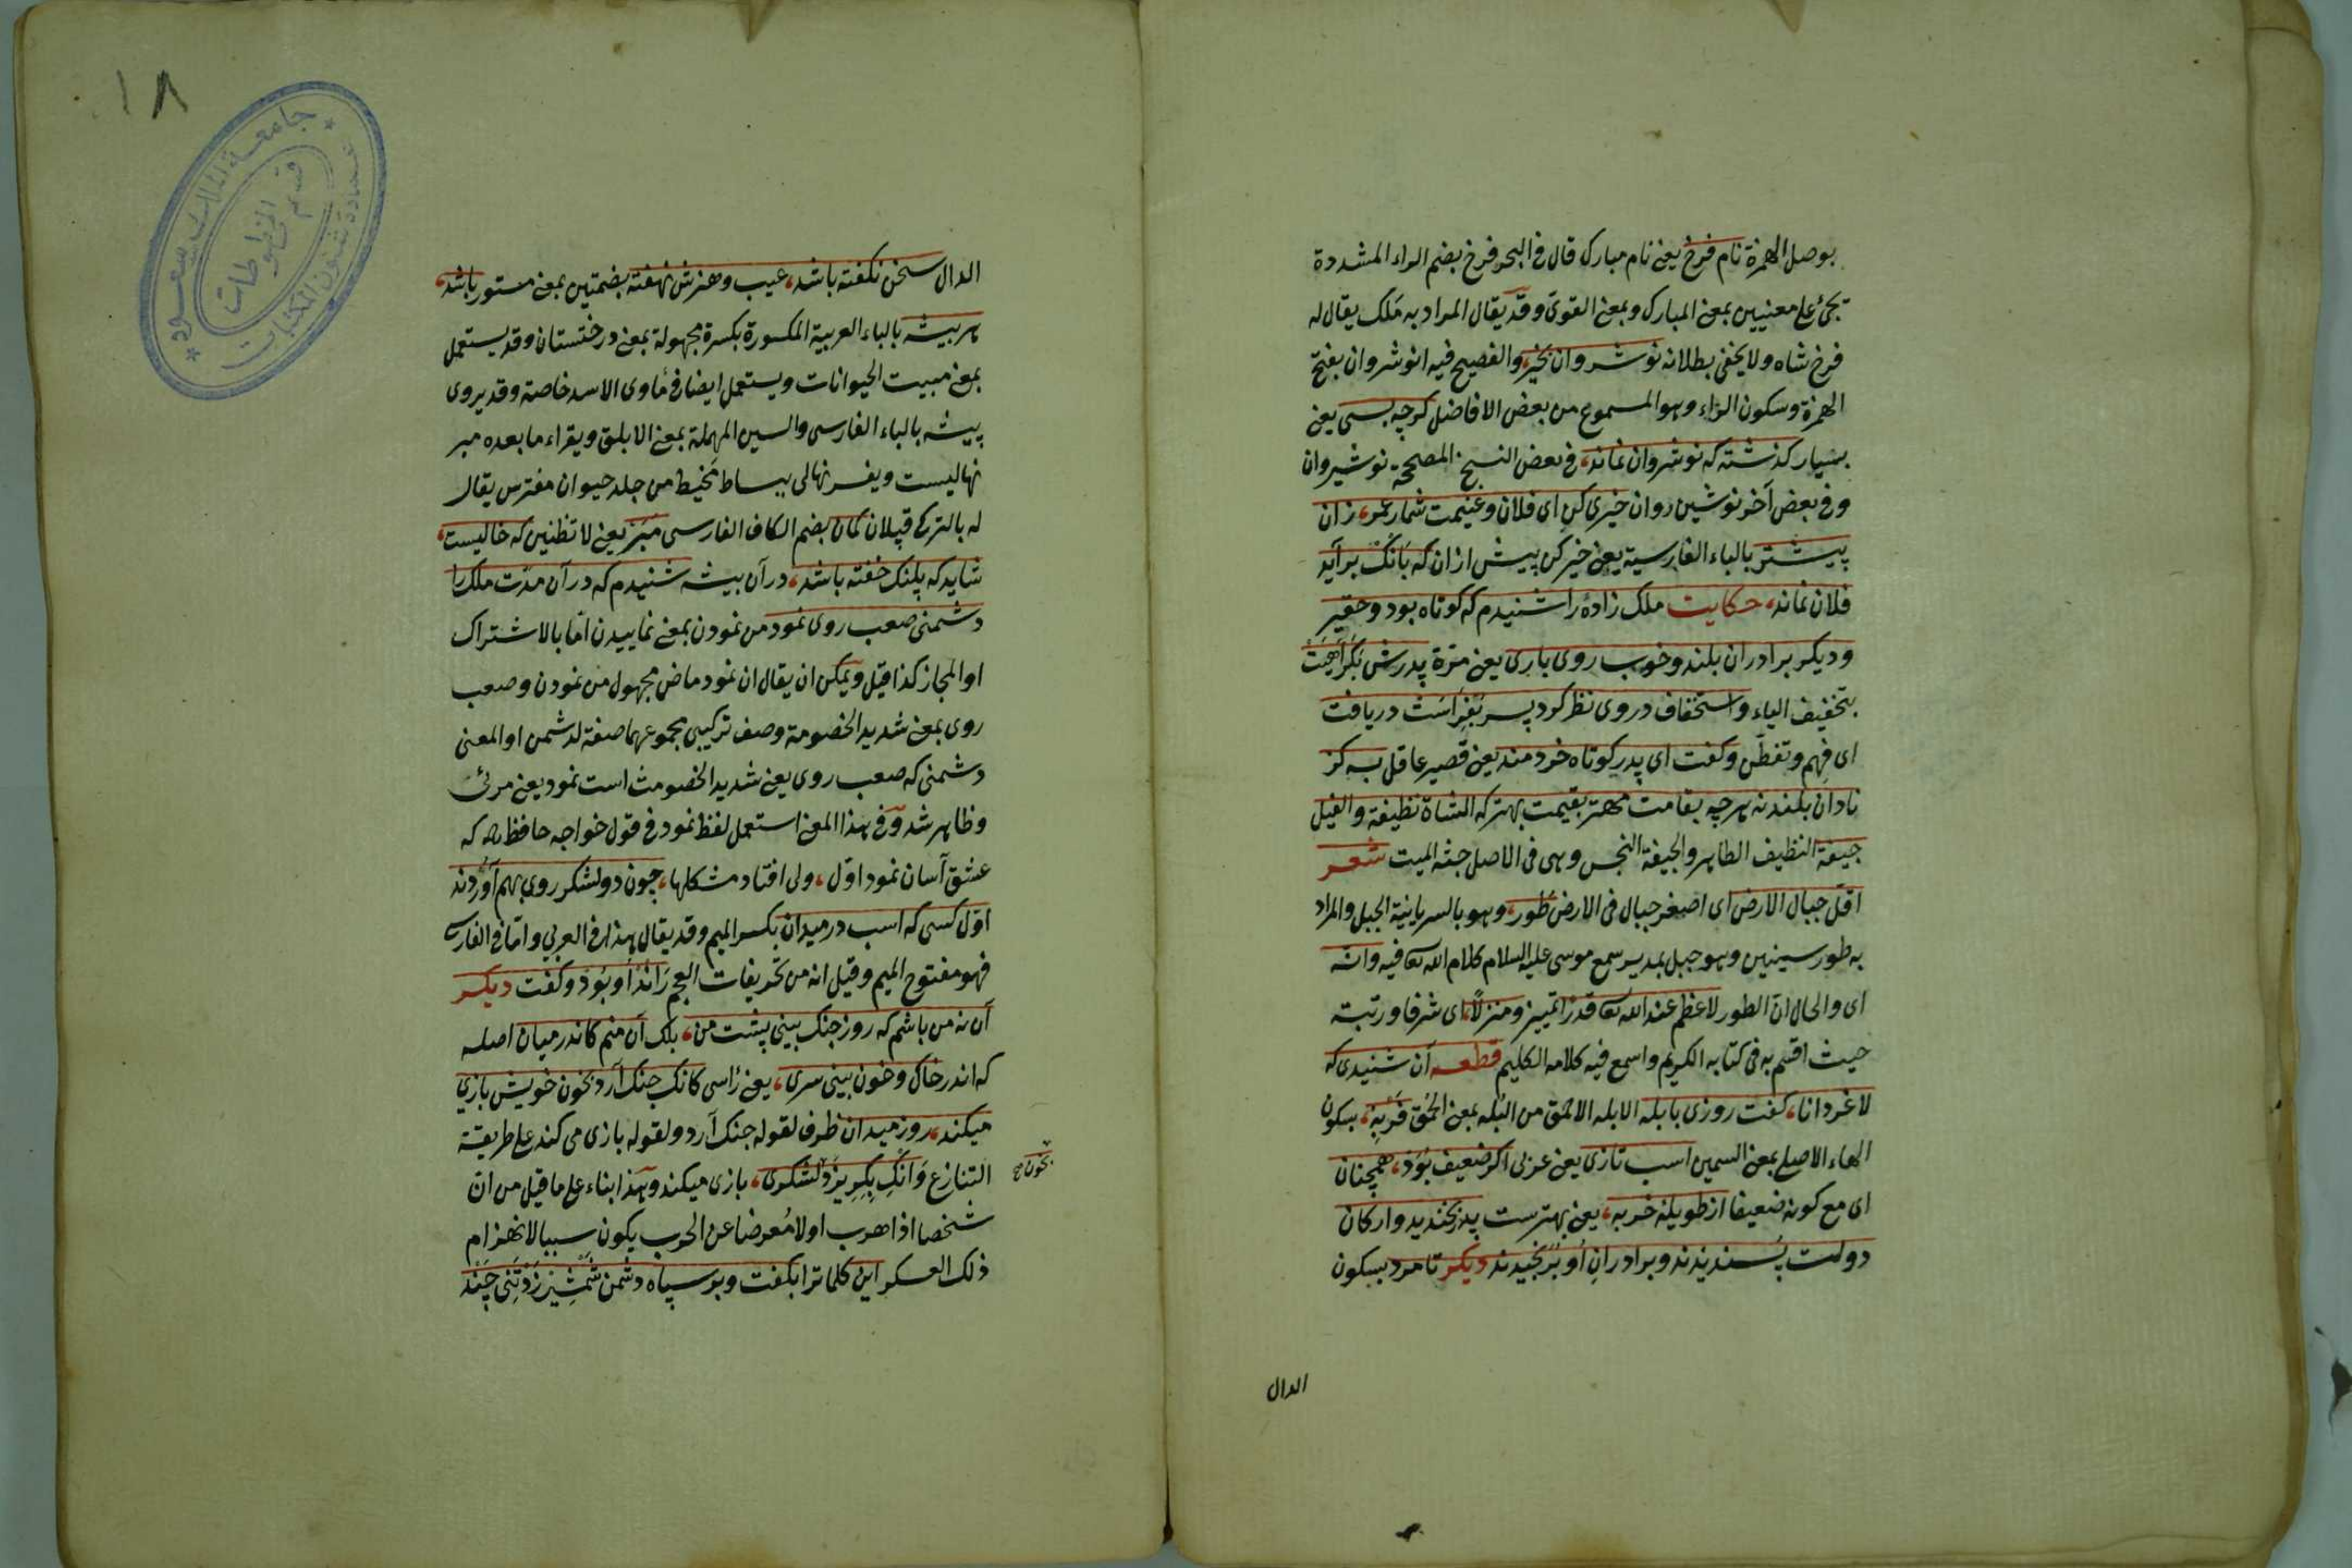 بوصل الهمزة نام فرخ يعنى نام مبارك قال فى البحر فرخ بضم الراء المشددة
يجئ على معنيين بمعنى المبارك وبمعنى القوى وقد يقال المراد به ملك يقال له
فرخ شاه ولا يخفى بطلانه نوشروان بخير، والفصيح فيه انوشروان بفتح
الهمزة وسكون الراء وهو المسموع من بعض الافاضل كرچه بسى يعنى
بسيار كذشته كه نوشروان نماند، فى بعض النسخ المصححة نوشيروان
وفى بعض آخر نوشين روان خيرى كن اى فلان وغنيمت شمار عمر، زان
پيشتر بالباء الفارسية يعنى خير كن پيش ازان كه بانك برآيد
فلان نماند، حكايت ملك زاده را شنيدم كه كوتاه بود وحقير
وديكر برادران بلند وخوب روى بارى يعنى مرة پدرش بكراهيت
بتخفيف الياء واستخفاف دروى نظر كرد پسر بفراست دريافت
اى فهم وتفطن وكفت اى پدر كوتاه خردمند يعنى قصير عاقل به كز
نادان بلند نه هرچه بقامت مهتر بقيمت بهتر كه الشاة نظيفة والفيل
جيفة النظيف الطاهر والجيفة النجس وهى فى الاصل جثه الميت شعر
اقل جبال الارض اى اصغر جبال فى الارض طور، وهو بالسريانية الجبل والمراد
به طور سينين وهو جبل بمدين سمع موسى عليه السلام كلام الله تعا فيه وانه
اى والحال ان الطور لاعظم عند الله تعا قدرا تمييز ومنزلا، اى شرفا ورتبة
حيث اقسم به فى كتابه الكريم واسمع فيه كلامه الكليم قطعه آن شنيدى كه
لاغر دانا، كفت روزى بابله الابله الاحمق من البله بمعنى الحمق فربه، بسكون
الهاء الاصلى بمعنى السمين اسب تازى يعنى عربى اكر ضعيف بود، همچنان
اى مع كونه ضعيفا از طويلهٔ خر به، يعنى بهترست پدر بخنديد واركان
دولت پسنديدند وبرادران او برنجيدند ديكر تا مرد بسكون
الدال
الدال سخن نكفته باشد، عيب وهنرش نهفته بضمتين بمعنى مستور باشد،
هر بيشه بالباء العربية المكسورة بكسرة مجهولة بمعنى درختستان وقد يستعمل
بمعنى مبيت الحيوانات ويستعمل ايضا فى مأوى الاسد خاصة وقد يروى
پيسه بالباء الفارسى والسين المهملة بمعنى الابلق ويقراء ما بعده مبر
نهاليست ويفسر نهالى ببساط تخيط من جلد حيوان مفترس يقال
له بالتركى قپلان كمان بضم الكاف الفارسى مبر يعنى لا تظنين كه خاليست،
شايد كه پلنك خفته باشد، درآن بيشه شنيدم كه درآن مدت ملك را
دشمنى صعب روى نمود من نمودن بمعنى نماييدن اما بالاشتراك
او المجاز كذا قيل ويمكن ان يقال ان نمود ماض مجهول من نمودن وصعب
روى بمعنى شديد الخصومة وصف تركيبى مجموعهما صفة لدشمن او المعنى
دشمنى كه صعب روى يعنى شديد الخصومت است نمود يعنى مرئى
وظاهر شد وفى هذا المعنى استعمل لفظ نمود فى قول خواجه حافظ ره كه
عشق آسان نمود اول، ولى افتاد مشكلها، چون دو لشكر روى بهم آوردند
اول كسى كه اسب در ميدان بكسر الميم وقد يقال هذا فى العربى واما فى الفارسى
فهو مفتوح الميم وقيل انه من تحريفات العجم راند او بود وكفت ديكر
آن نه من باشم كه روز جنك بينى پشت من، بلك آن منم كاندر ميان اصله
كه اندر خاك وخون بينى سرى، يعنى رأسى كانك جنك آرد بخون خويش بازى
ميكند، روز ميدان ظرف لقوله جنك آرد ولقوله بازى مى كند على طريقة
التنازع وانك بكريزد لشكرى، بازى ميكند وهذا بناء على ما قيل من ان
بخون صح
شخصا اذا هرب اولا معرضا عن الحرب يكون سببا لانهزام
ذلك العسكر اين كلماترا بكفت وبر سپاه دشمن شمشير زد تنى چند
١٨
جامعة الملك سعود
عمادة شئون المكتبات
قسم المخطوطات